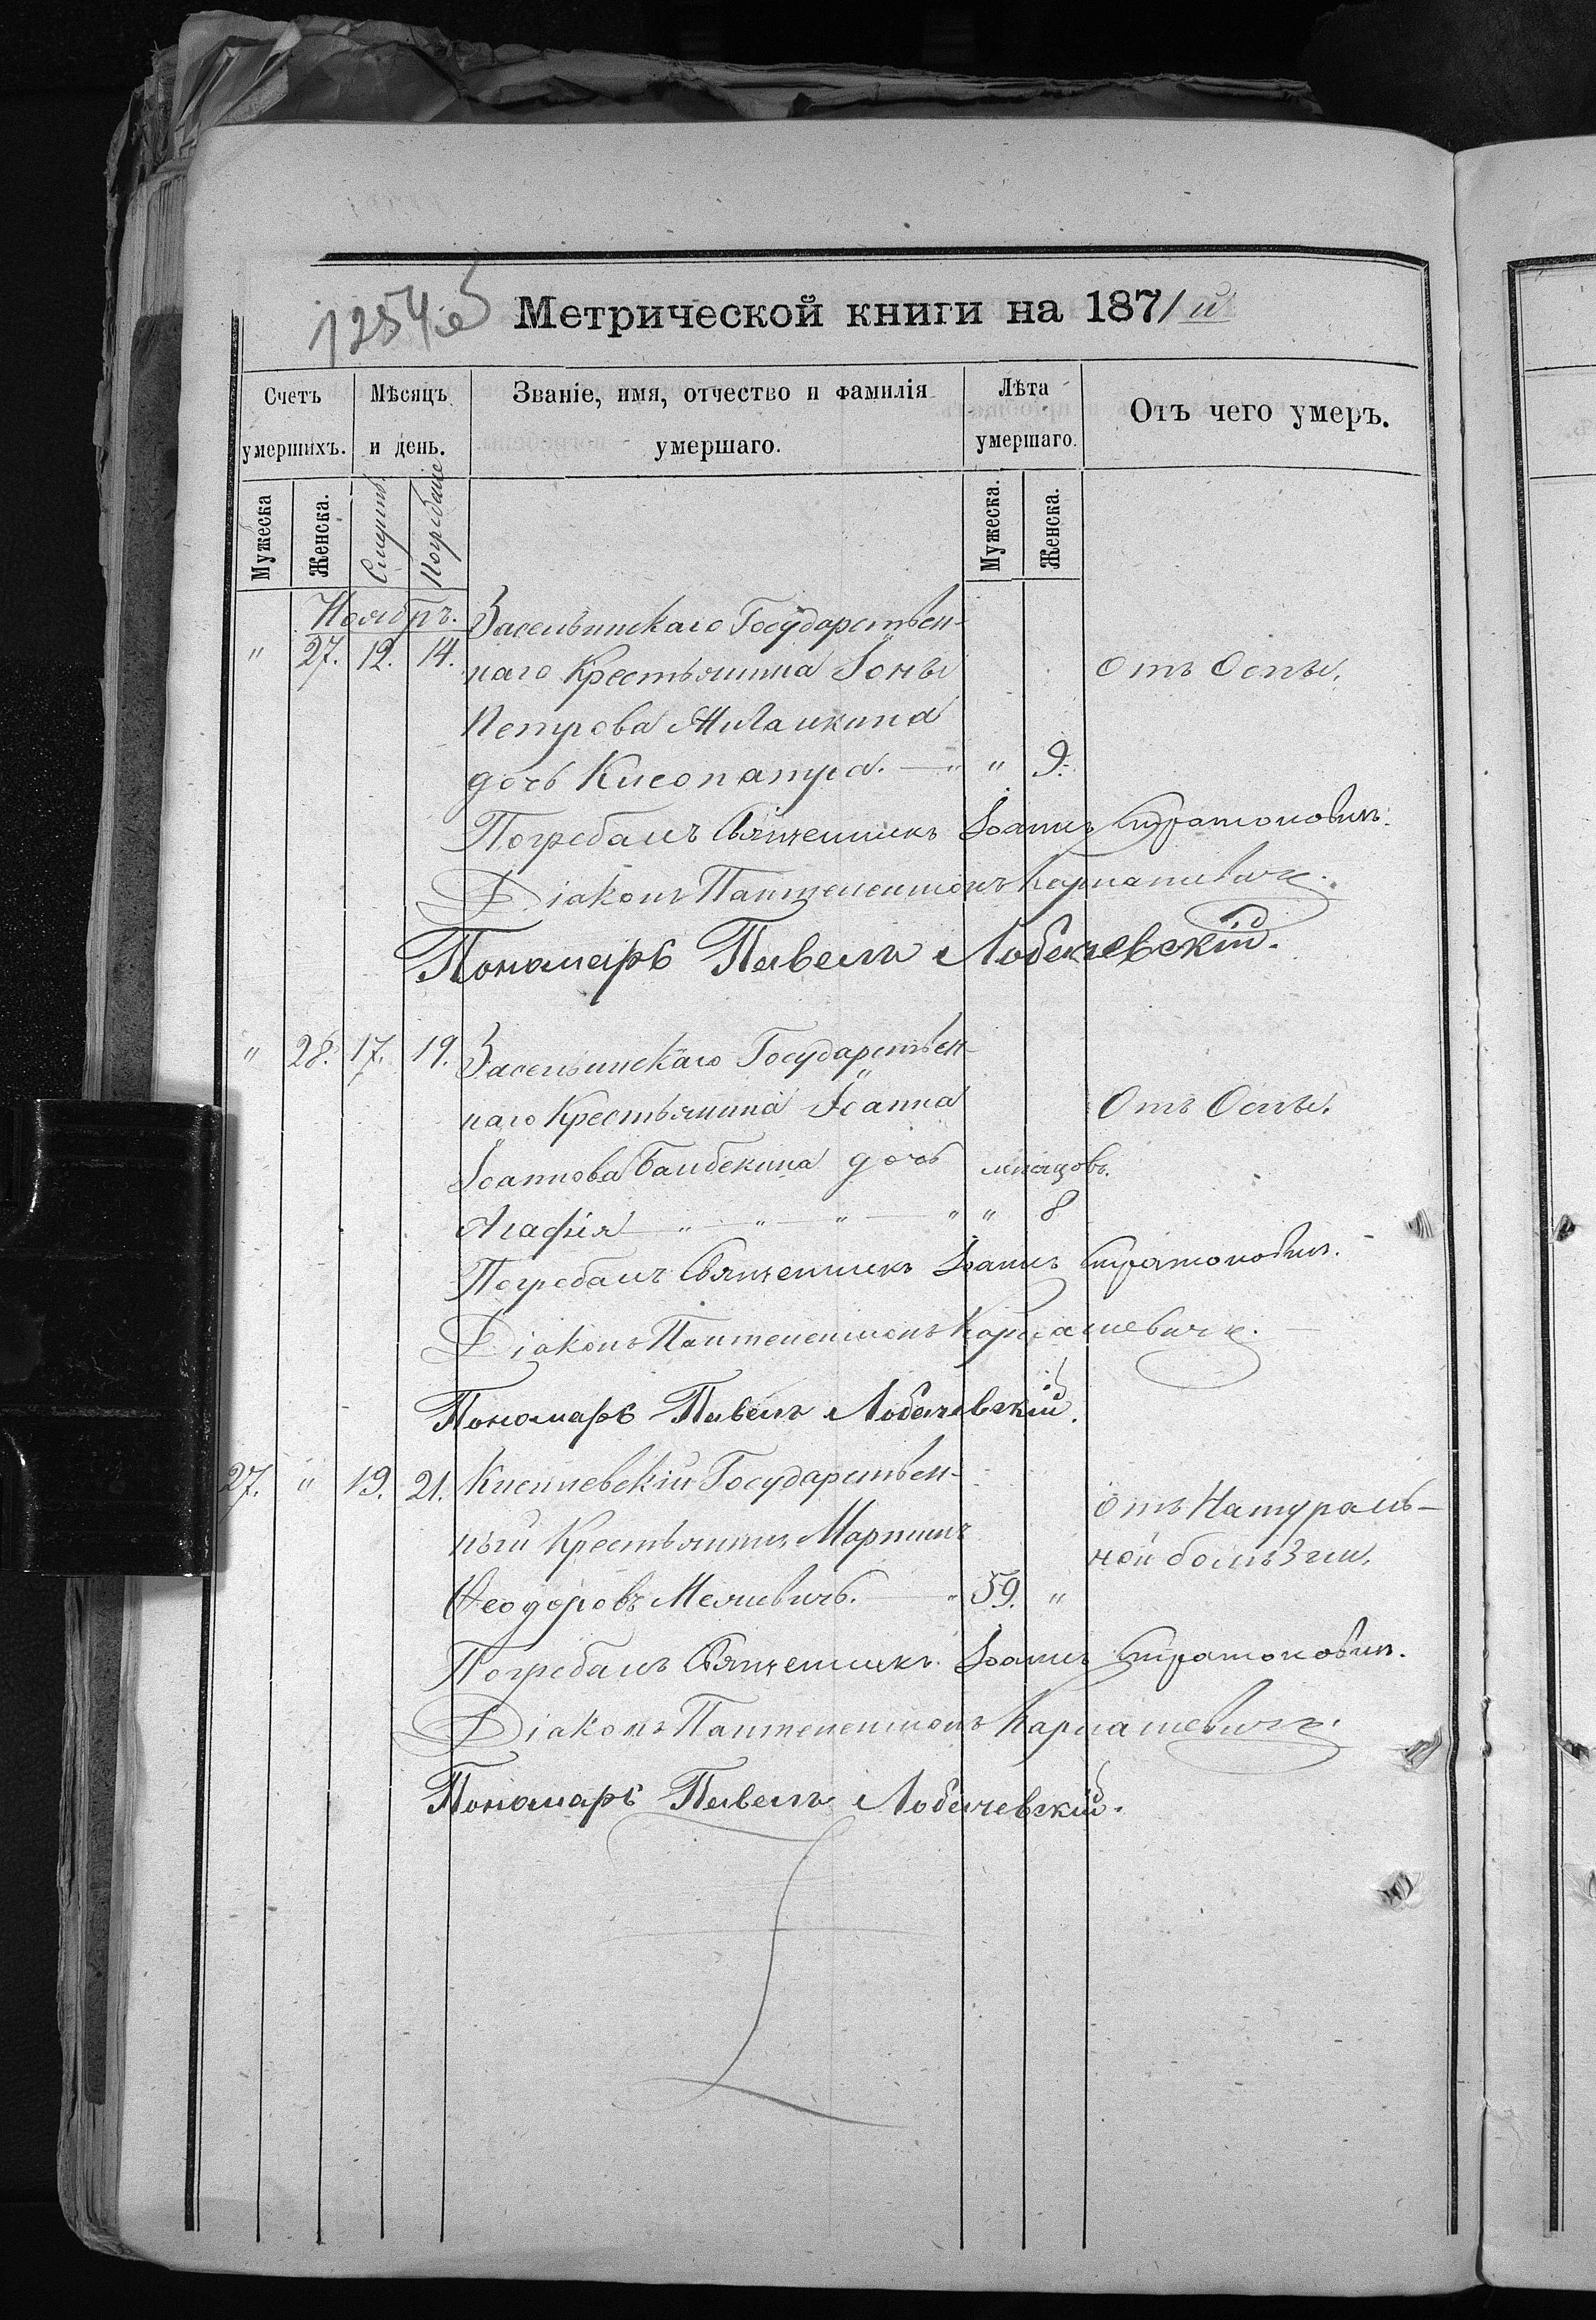 1254 об
Метрической книги на 1871 й
Счетъ умершихъ.
Мѣсяцъ и день.
Званіе, имя, отчество и фамилія умершаго.
Лѣта умершаго.
Отъ чего умеръ.
Мужеска
Женска.
Смерти
Погребеніе
Мужеска.
Женска.
Ноябрь.
Засельинскаго Государствен-
" 27. 12. 14. наго Крестьянина Іоны отъ Оспы.
Петрова
дочь Клеопатра. — " " 9.
Погребалъ Священникъ Іоаннъ Стратоновичъ.
Діаконъ Пантелеимонъ Карпашевичъ.
Пономарь Павелъ Лобачевскій.
" 28. 17. 19. Засельинскаго Государствен-
наго Крестьянина Іоанна Отъ Оспы.
Іоаннова дочь мѣсяцовъ.
Агафія — " — " — " — " " 8
Погребалъ Священникъ Іоаннъ Стратоновичъ.
Діаконъ Пантелеимонъ Карпашевичъ.
Пономарь Павелъ Лобачевскій.
27. " 19. 21. Государствен-
ный Крестьянинъ Мартинъ отъ Натураль-
ной болѣзни.
Ѳеодоровъ — " 59. "
Погребалъ Священникъ Іоаннъ Стратоновичъ.
Діаконъ Пантелеимонъ Карпашевичъ.
Пономарь Павелъ Лобачевскій.